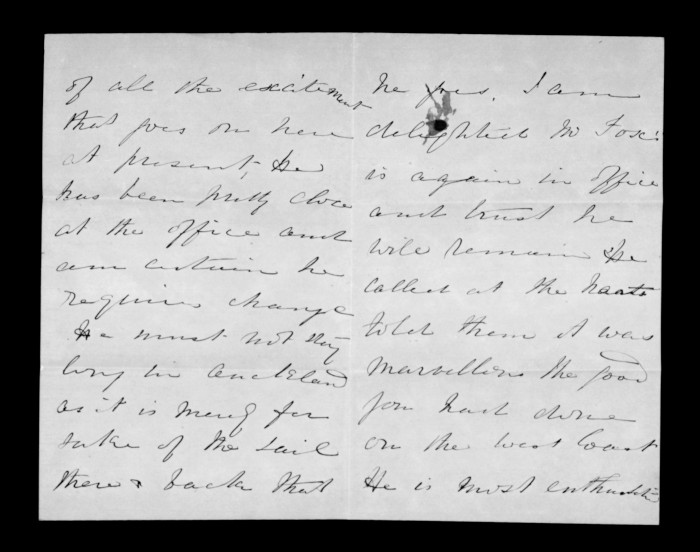 of all the excitement
that goes on here
at present, He
has been pretty close
at the office and
am certain he
requires change
He must not stay
long in Auckland
as it is merely for
sake of the sail
there & back that
he goes. I am
delighted Mr Fox
is again in office
and trust he
will remain He
called at the
told them it was
marvellous the good
you had done
on the West Coast
He is most enthusiastic